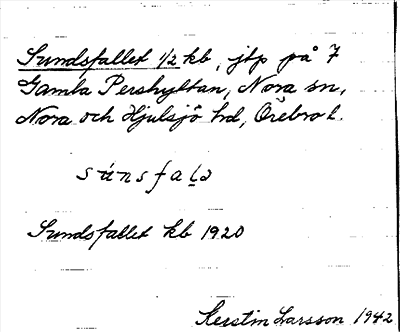 Sundsfallet 1/2 kb, jtp på 7
Gamla Pershyttan, Nora sn,
Nora och Hjulsjö hd, Örebro l.
Sundsfallet kb 1920
Kerstin Larsson 1942